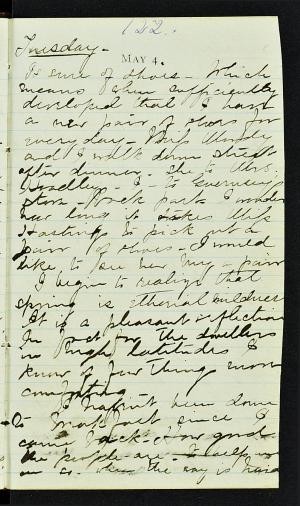 122.
Tuesday -
MAY 4.
of shoes - Which
means when sufficiently
developed that I have
a new pair of shoes for
every day - Miss
and I walk down street
after dinner. she to Mrs.
I - to
store I wonder
how long it takes Miss
Hastings to pick out a
pair of shoes - I would
like to see her buy a pair
I begin to realize that
spring is etherial mildness
It is a pleasant reflection
In fact for the dwellers
in high latitudes I
know of few things more
comforting
I haven't been down
to since I
came back - How good
the people are - I
the way is hard